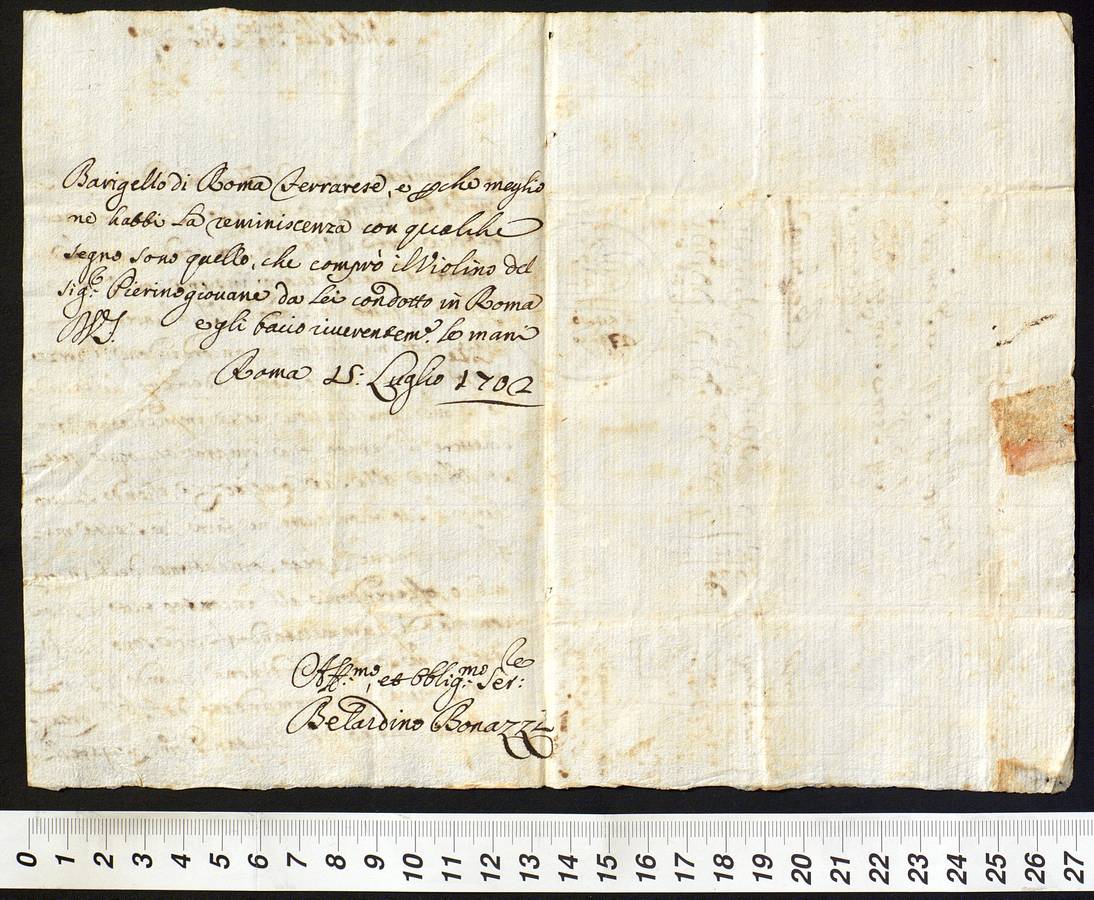 Barigello di Roma Ferrarese, e pche meglio
ne habbi La reminiscenza con qualche
segno sono quello, che comprò il Violino del
sig.r Pierino giovane da Lei condotto in Roma
e gli bacio riverentem.e le mani
Roma 15: Luglio 1702
Aff.mo, et oblig.mo Ser.re
Belardino Bonazzi
0 1 2 3 4 5 6 7 8 9 10 11 12 13 14 15 16 17 18 19 20 21 22 23 24 25 26 27